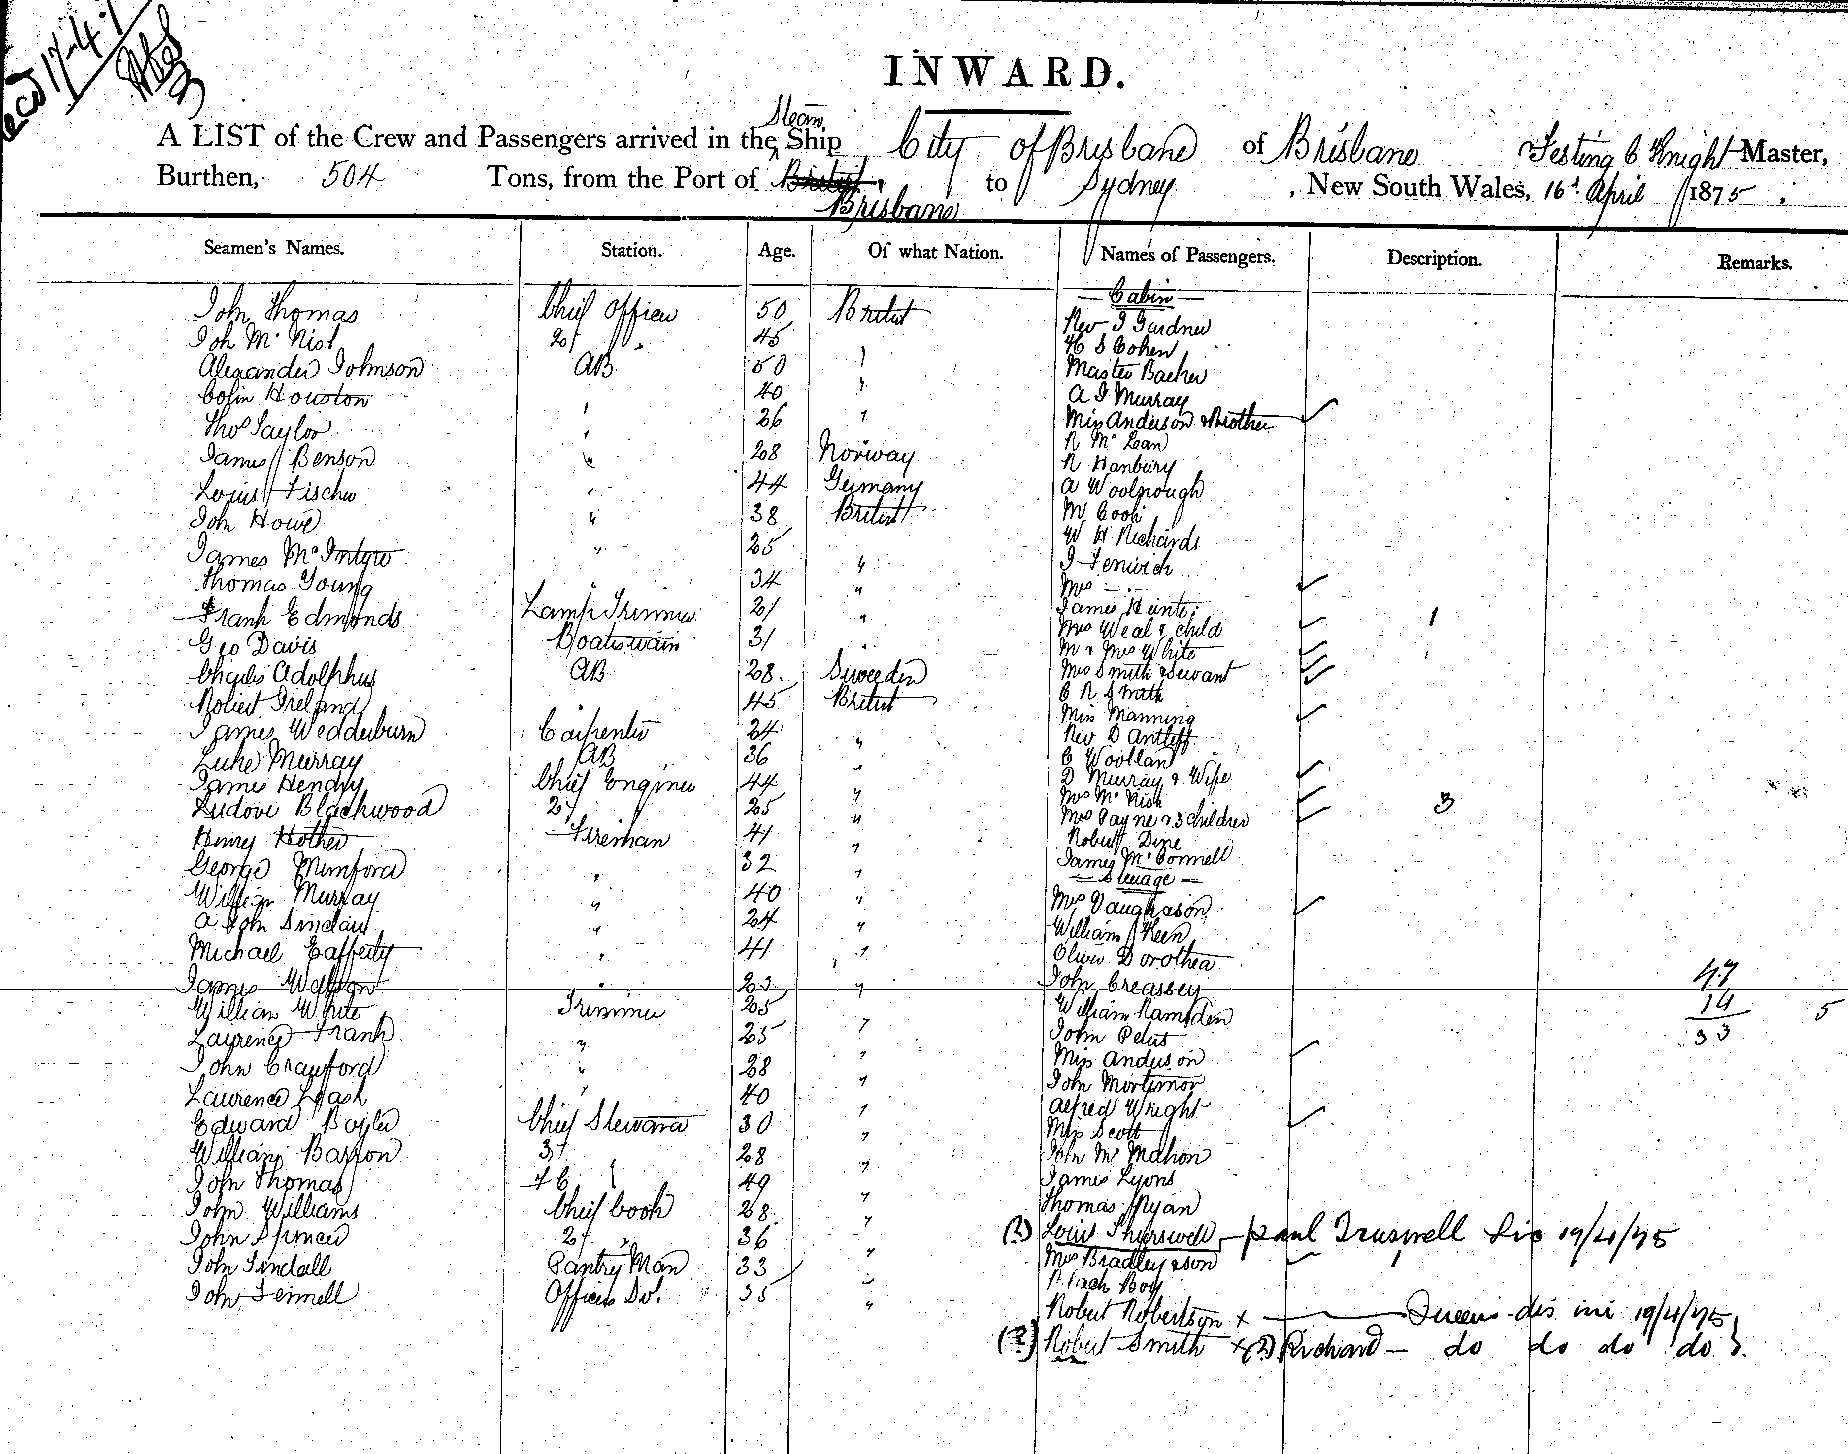 Recd 17-4-7
INWARD.
A LIST of the Crew and Passengers arrived in the Steam Ship City of Brisbane of Brisbane Testing C Knight Master,
Burthen, 504 Tons, from the Port of Brisbane to Sydney, New South Wales, 16th April 1875.
Seamen's Names. Station. Age. Of what Nation. Names of Passengers. Description. Remarks.
Cabin
John Thomas Chief Officer 50 British Rev J Gardner
Joh McNish 2d " 45 H S Cohen
Alexander Johnson AB 50 " Master Barker
Colin Houston 40 " A J Murray
Thos Taylor " 26 " Miss Anderson & Brother
James Benson " 28 Norway R McLean
R Hanbury
Louis Fischer " 44 Germany A Woolnough
John Howe " 38 British M Cook
W H Richards
James McIntyre " 25 J Fenwick
Thomas Young " 34 " Mrs "
Frank Edmonds Lamp Trimmer 21 " James Hunter
Mrs Weal & child 1
Geo Davis Boatswain 31 " M & Mrs White
Charles Adolphus AB 28 Sweeden Mrs Smith & Servant
Robert Ireland " 45 British C R Smith
Miss Manning
James Wedderburn Carpenter 24 " Rev D Antleff
Luke Murray AB 36 " C Woollan
James Hendry Chief Engineer 44 " D Murray & Wife
Mrs McNish
Ludovic Blackwood 2d 25 " Mrs Payne & 3 children 3
Henry Hother Fireman 41 " Robert Dine
George Mumford " 32 " James McConnell
Steerage
William Murray " 40 " Mrs Vaugh & son
A John Sinclair " 24 " William Keen
Michael Cafferty " 41 " Oliver Dorothea
James Watson " 23 " John Creassey 47
William White Trimmer 25 William Ramsden 14 5
Laurence Frank " 25 " John Peters 33
John Crawford " 28 " Miss Anderson
John Mortimor
Laurence Leash " 40 " Alfred Wright
Edward Bayler Chief Steward 30 " Miss Scott
William Barron 3d 28 " John McMahon
John Thomas F C " 49 " James Lyons
John Williams Chief Cook 28 " Thomas Ryan
John Spencer 2d " 36 " (?) Louis Thurswell - Paul Truswell Dis 19/4/75
John Tindall Pantry Man 33 " Mrs Bradley & son
John Fennell Officers Do. 35 " Boy
Robert Robertson x Queens dis ini 19/4/75
(?) Robert Smith x (2) Richard - do do do do